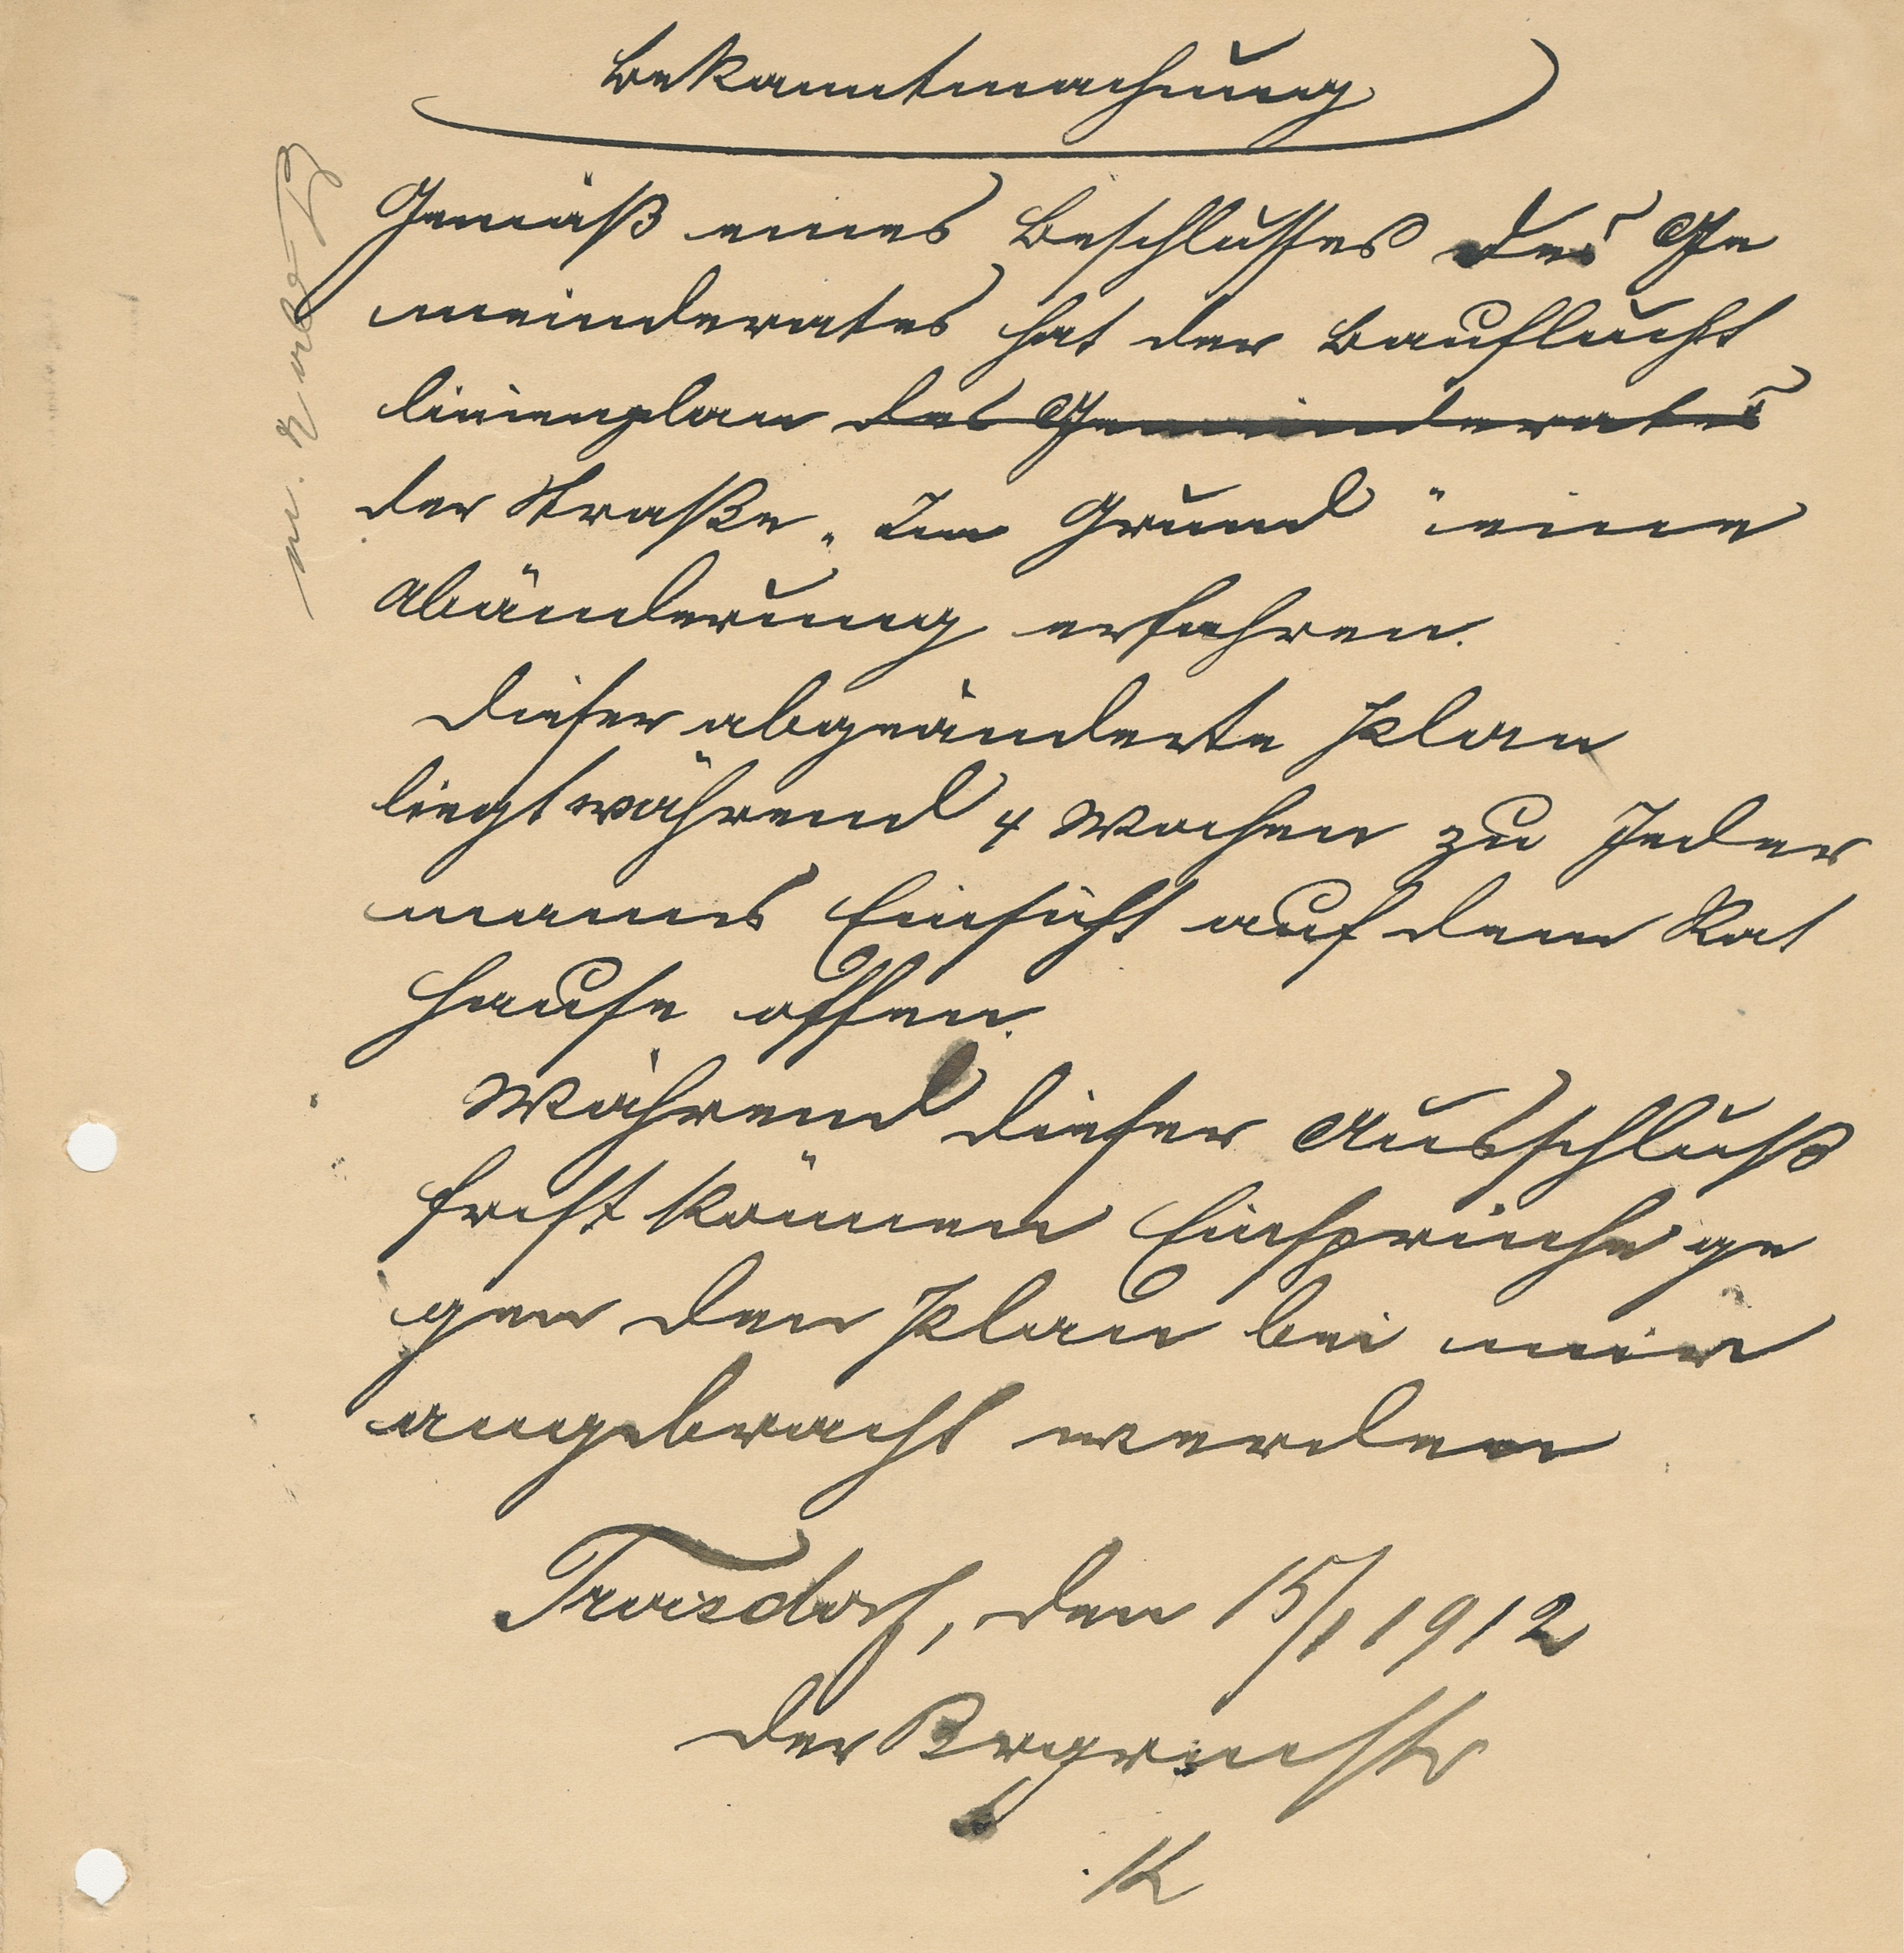 Bekanntmachung
Gemäß eines Beschlusses des Ge
meinderates hat der Bauflucht
linienplan des Gemeinderates
der Straße „Im Grund" eine
Abänderung erfahren.
Dieser abgeänderte Plan
liegt während 4 Wochen zu Jeder
manns Einsicht auf dem Rat
hause offen.
Während dieser Ausschluß
frist können Einsprüche ge
gen den Plan bei mir
angebracht werden
Troisdorf, den 15/1 1912
Der Brgrmstr
K